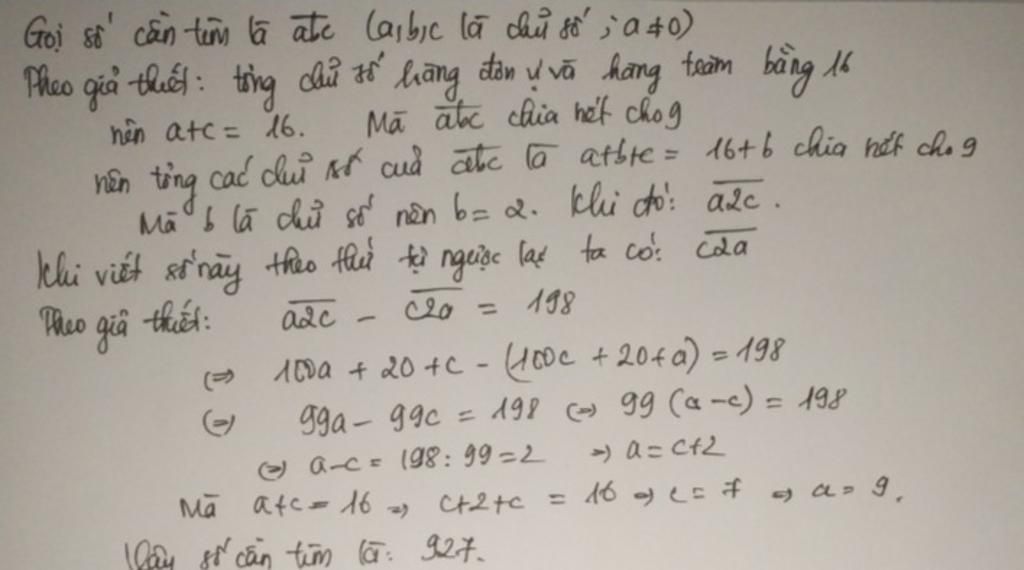 Gọi số cần tìm là abc (a,b,c là chữ số ; a≠0)
Theo giả thiết: tổng chữ số hàng đơn vị và hàng trăm bằng 16
nên a+c = 16. Mà abc chia hết cho 9
nên tổng các chữ số của abc là a+b+c = 16+b chia hết cho 9
Mà b là chữ số nên b = 2. Khi đó: a2c.
Khi viết số này theo thứ tự ngược lại ta có: c2a
Theo giả thiết: a2c - c2a = 198
⇔ 100a + 20 + c - (100c + 20 + a) = 198
⇔ 99a - 99c = 198 ⇔ 99 (a-c) = 198
⇔ a-c = 198 : 99 = 2 ⇒ a = c+2
Mà a+c = 16 ⇒ c+2+c = 16 ⇒ c = 7 ⇒ a = 9.
Vậy số cần tìm là: 927.